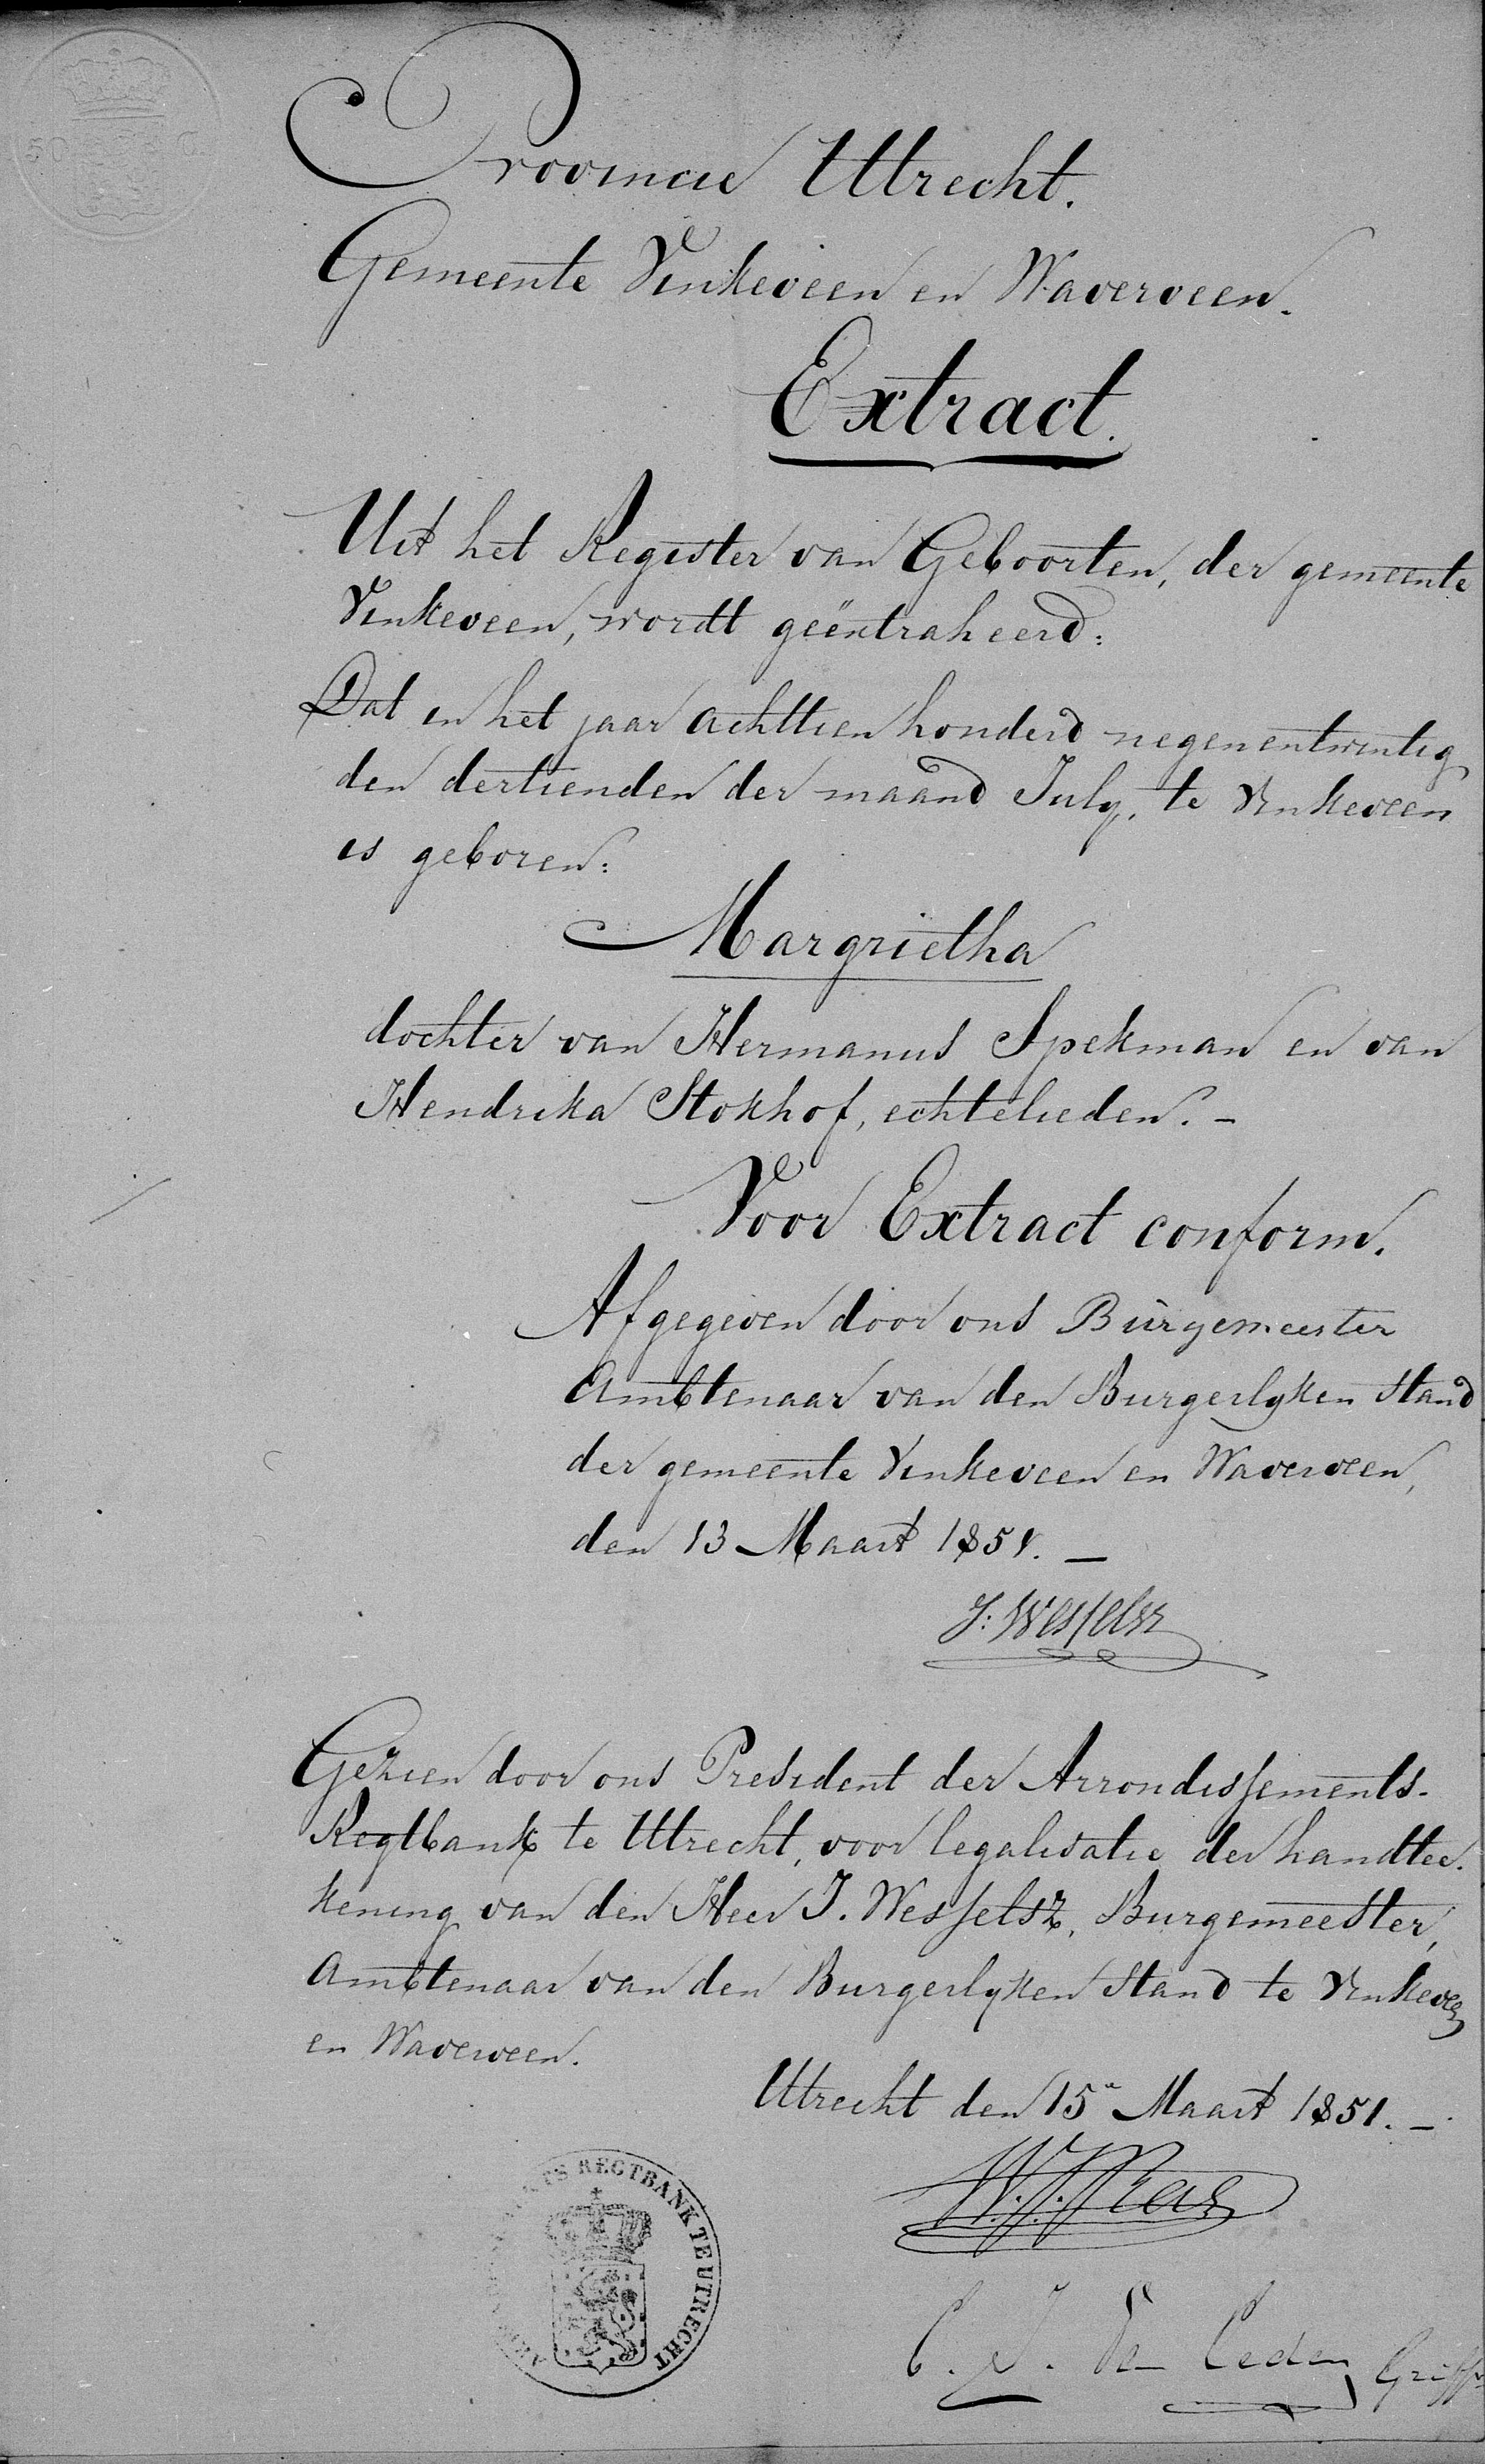 50 C
Provincie Utrecht.
Gemeente Vinkeveen en Waverveen.
Extract.
Uit het Register van Geboorten, der gemeente
Vinkeveen, wordt geëxtraheerd:
Dat in het jaar achttien honderd negenentwintig
den dertienden der maand July, te Vinkeveen
is geboren:
Margrietha
dochter van Hermanus Spekman en van
Hendrika Stokhof, echtelieden. –
Voor Extract conform.
Afgegeven door ons Burgemeester
Ambtenaar van den Burgerlyken Stand
der gemeente Vinkeveen en Waverveen,
den 13 Maart 1851. –
J: Wesselsz
Gezien door ons President der Arrondissements-
Regtbank te Utrecht, voor legalisatie der handtee-
kening van den Heer J. Wesselsz, Burgemeester,
Ambtenaar van den Burgerlyken Stand te Vinkeveen
en Waverveen.
Utrecht den 15n Maart 1851. –
TS REGTBANK TE UTRECHT
Griffr